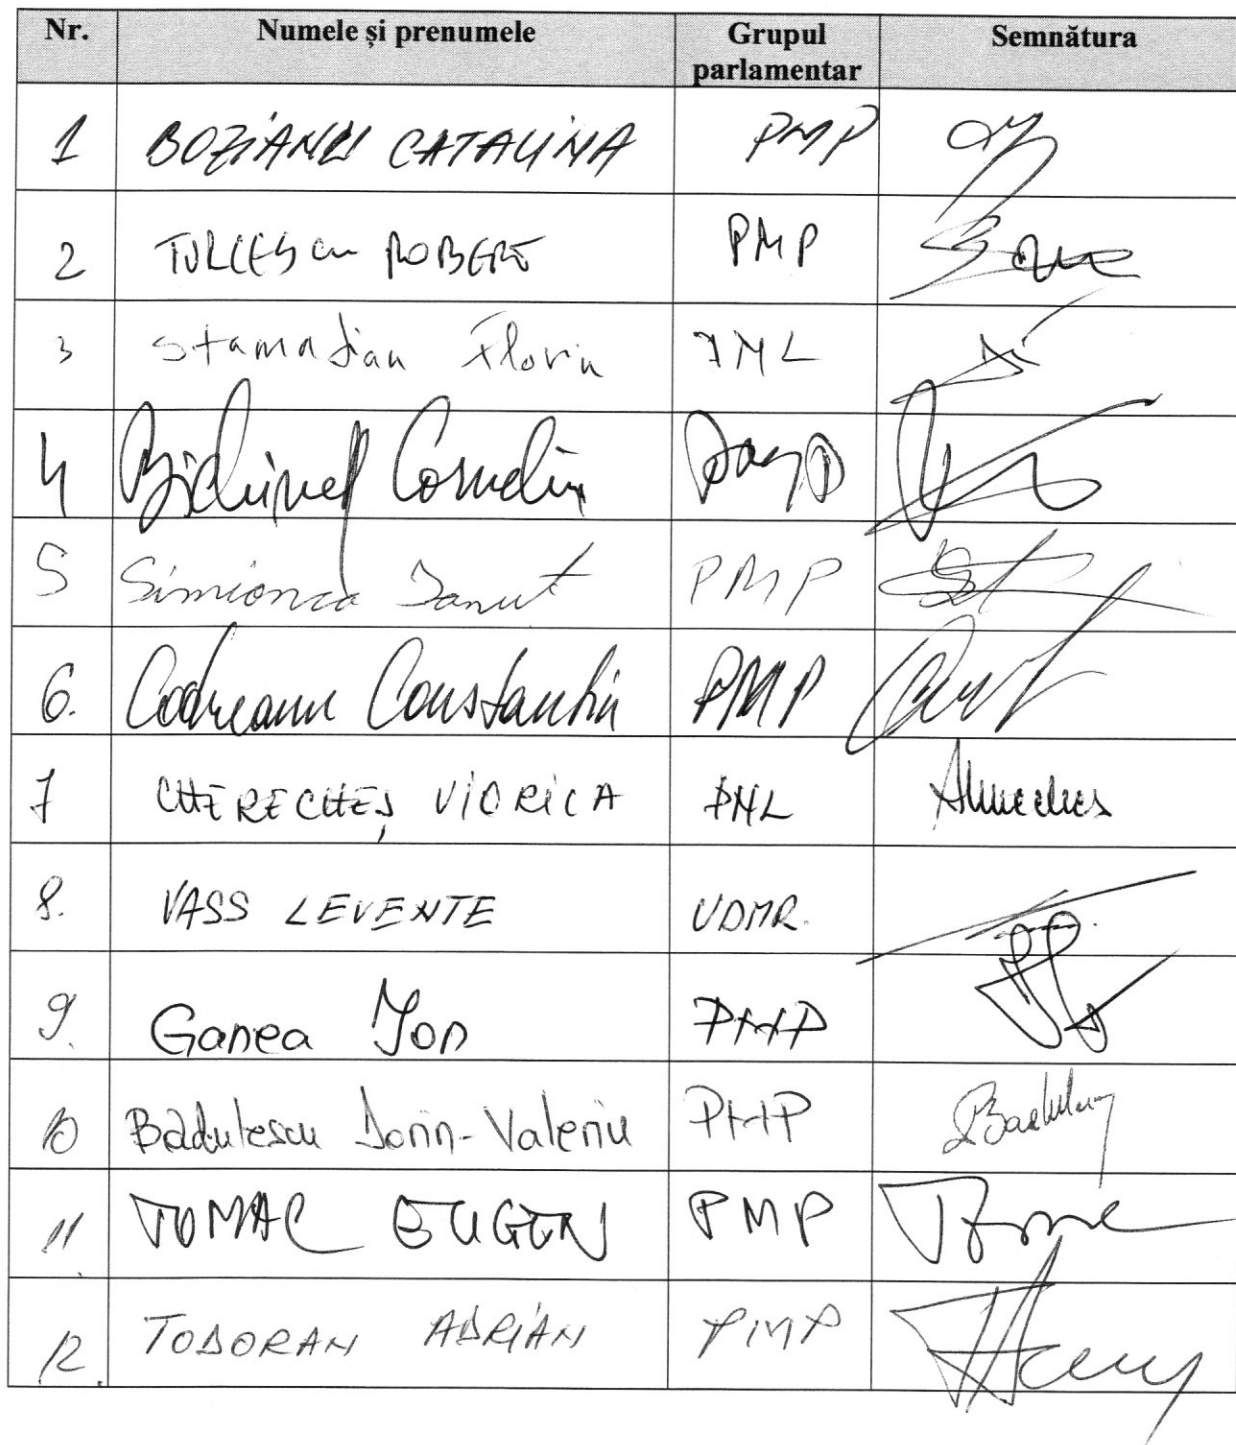 Nr. Numele și prenumele Grupul parlamentar Semnătura
1 BOZIANU CATALINA PMP
2 TURCESCU ROBERT PMP
3 Stamatian Florin PNL
4 Bichineț Corneliu PMP
5 Simionca Ionut PMP
6. Codreanu Constantin PMP
7 CHERECHEȘ VIORICA PNL
8. VASS LEVENTE UDMR.
9. Ganea Ion PMP
10 Badulescu Dorin-Valeriu PMP
11. TOMAC EUGEN PMP
12. TODORAN ADRIAN PMP